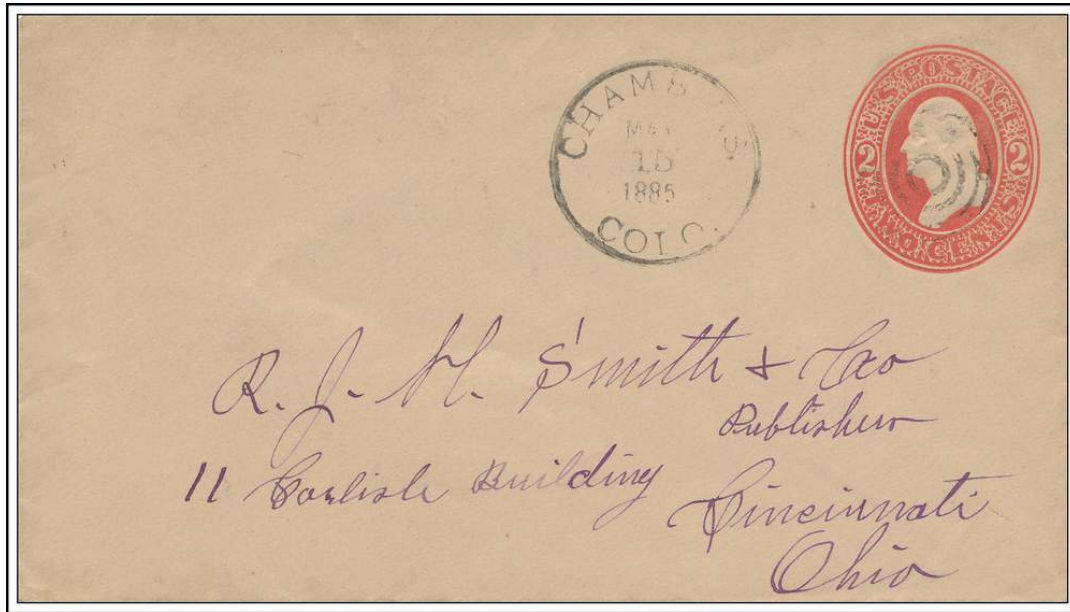 MAY
15
1885
COLO.
U.S. POSTAGE
2 2
TWO CENTS
R. J. H. Smith & Co
Publishers
11 Carlisle Building
Cincinnati
Ohio